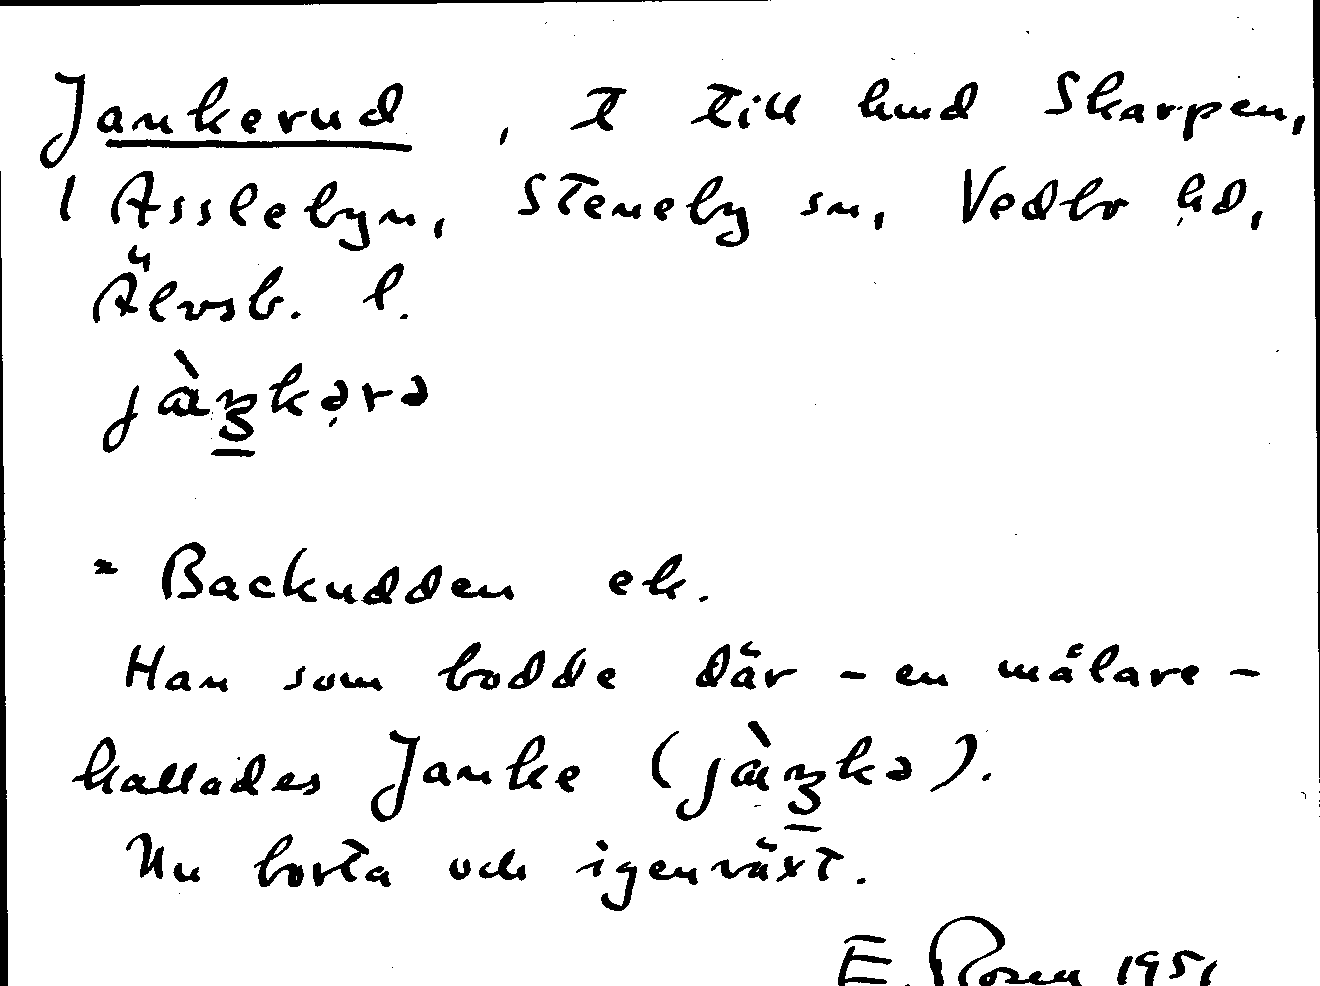 Jankerud, t till hmd Skarpen,
1 Asslebyn, Steneby sn, Vedbo hd,
Älvsb. l.
jàŋkərə
= Backudden ek.
Han som bodde där - en målare -
kallades Janke (jàŋkə).
Nu borta och igenväxt.
E. Rosen 1951